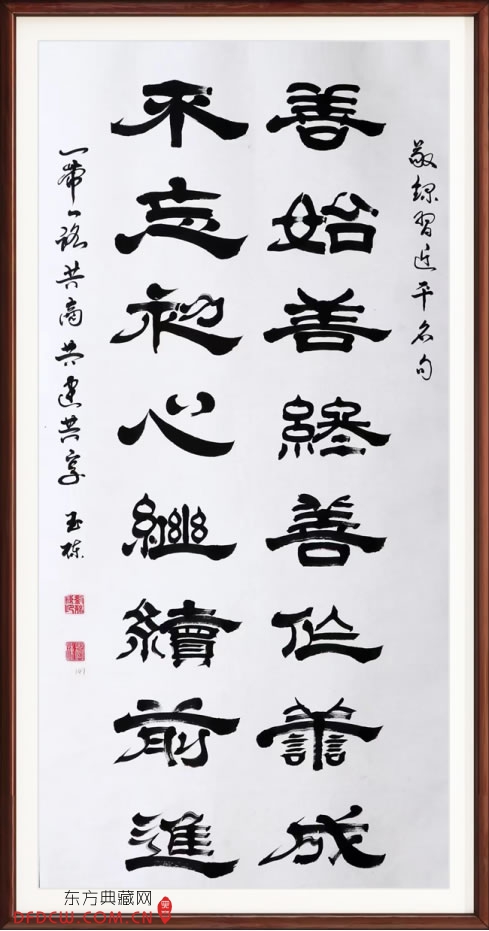 敬録習近平名句
善始善終善作善成
不忘初心繼續前進
一帶一路共商共建共享 玉栋
东方典藏网
DFDCW.COM.CN